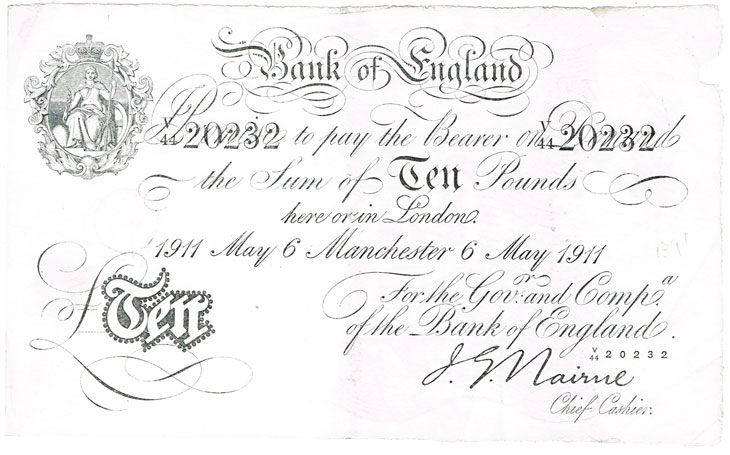 Bank of England
V/44 20232 to pay the Bearer on V/44 20232
the Sum of Ten Pounds
here or in London.
1911 May 6 Manchester 6 May 1911
For the Govr. and Compa.
of the Bank of England.
£Ten
V/44 20232
J. G. Nairne
Chief Cashier.